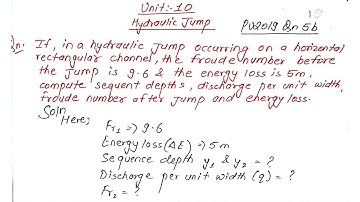 Unit:-10
Hydraulic Jump
PU2019 Qn 5b
Qn: If, in a hydraulic jump occurring on a horizontal
rectangular channel, the froude number before
the jump is 9.6 & the energy loss is 5m,
compute sequent depths, discharge per unit width,
froude number after jump and energy loss.
Soln
Here;
Fr₁ => 9.6
Energy loss (ΔE) => 5m
Sequence depth y₁ & y₂ = ?
Discharge per unit width (q) = ?
Fr₂ = ?